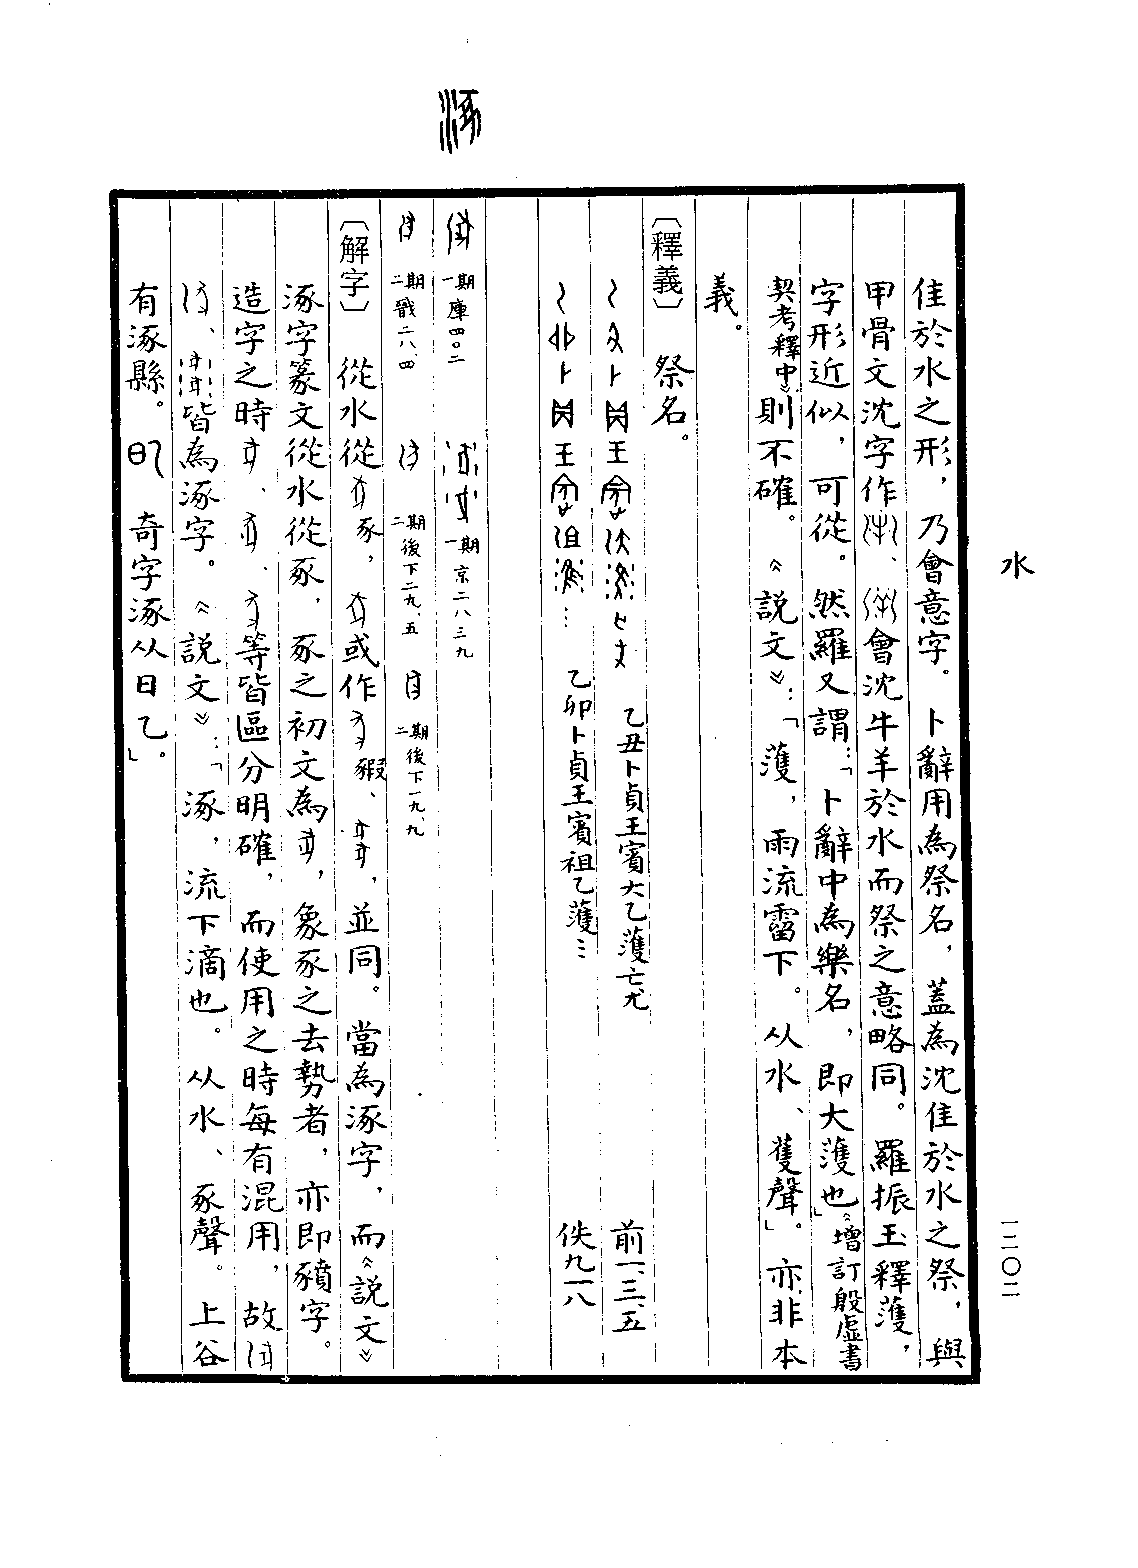 水
一二〇二
隹於水之形，乃會意字。卜辭用為祭名，蓋為沈隹於水之祭，與
甲骨文沈字作、會沈牛羊於水而祭之意略同。羅振玉釋濩，
字形近似，可從。然羅又謂：「卜辭中為樂名，即大濩也」《增訂殷虛書
契考釋中》則不確。《說文》：「濩，雨流霤下。从水、蒦聲」。亦非本
義。
〔釋義〕 祭名。
乙丑卜貞王賓大乙濩亡尤 前一、三、五
乙卯卜貞王賓祖乙濩… 佚九一八
涿
一期庫四〇二 一期京二八三九
二期戩二八、四 二期後下二九、五 二期後下一九、九
〔解字〕 從水從豕，或作豭、，並同。當為涿字，而《說文》
涿字篆文從水從豖，豖之初文為，象豕之去勢者，亦即豶字。
造字之時、、等皆區分明確，而使用之時每有混用，故
、皆為涿字。《說文》：「涿，流下滴也。从水、豖聲。上谷
有涿縣。奇字涿从日乙」。